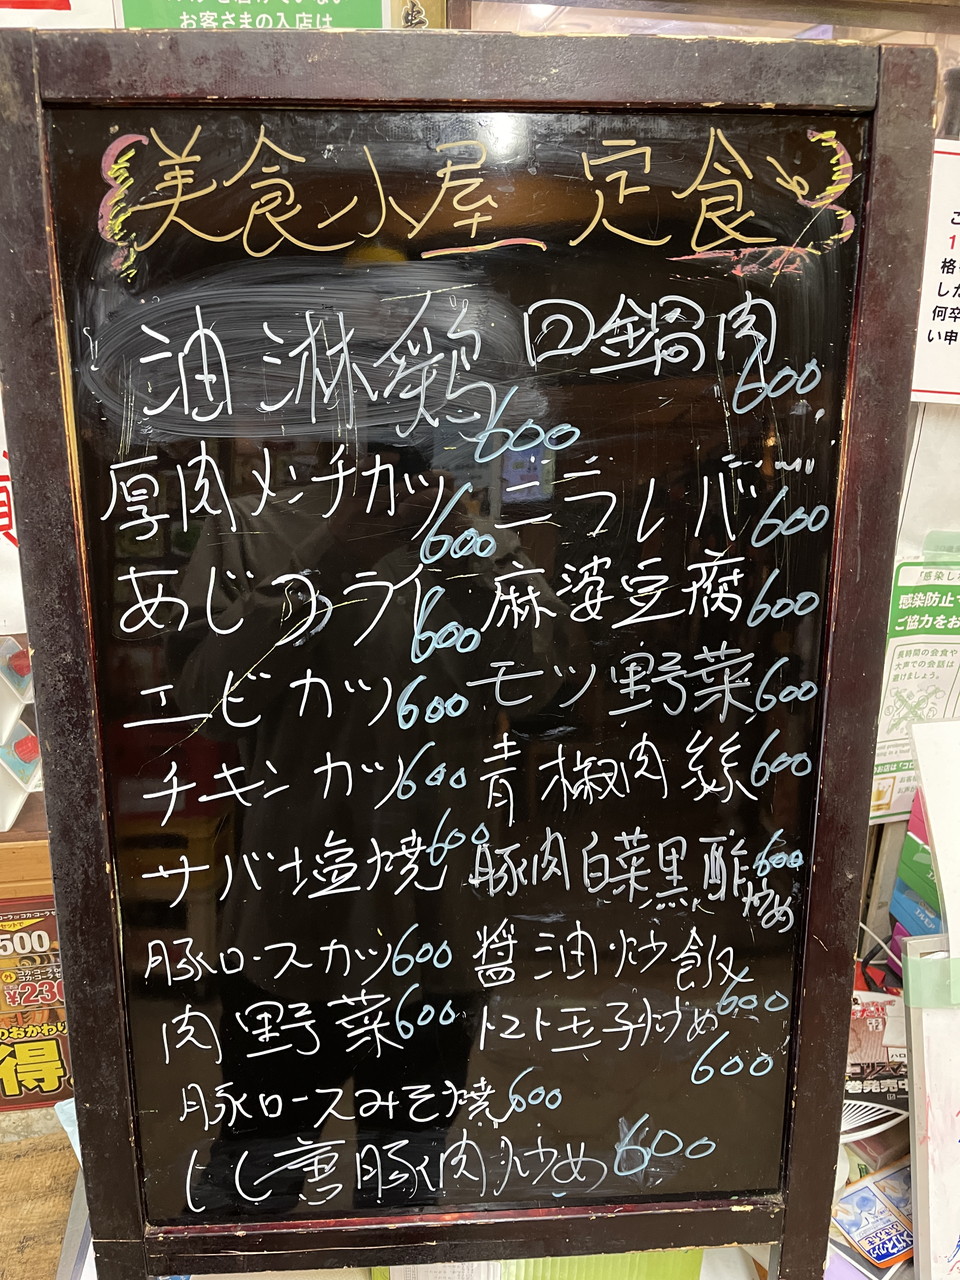 お客さまの入店は
美食小屋 定食
油淋鶏 600
回鍋肉 600
厚肉メンチカツ 600
ニラレバ 600
あじフライ 600
麻婆豆腐 600
エビカツ 600
モツ野菜 600
チキンカツ 600
青椒肉絲 600
サバ塩焼 600
豚肉白菜黒酢炒め 600
豚ロースカツ 600
醤油炒飯 600
肉野菜 600
トマト玉子炒め 600
豚ロースみそ焼 600
しし唐豚肉炒め 600
感染防止
ご協力をお
長時間の会食や
大声での会話は
避けましょう。
500
¥230
のおかわり
得
巻発売中